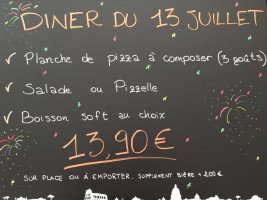 DINER DU 13 JUILLET
✓ Planche de pizza à composer (3 goûts)
✓ Salade ou Pizzelle
✓ Boisson soft au choix
13,90€
SUR PLACE OU À EMPORTER. SUPPLEMENT BIÈRE + 2,00€